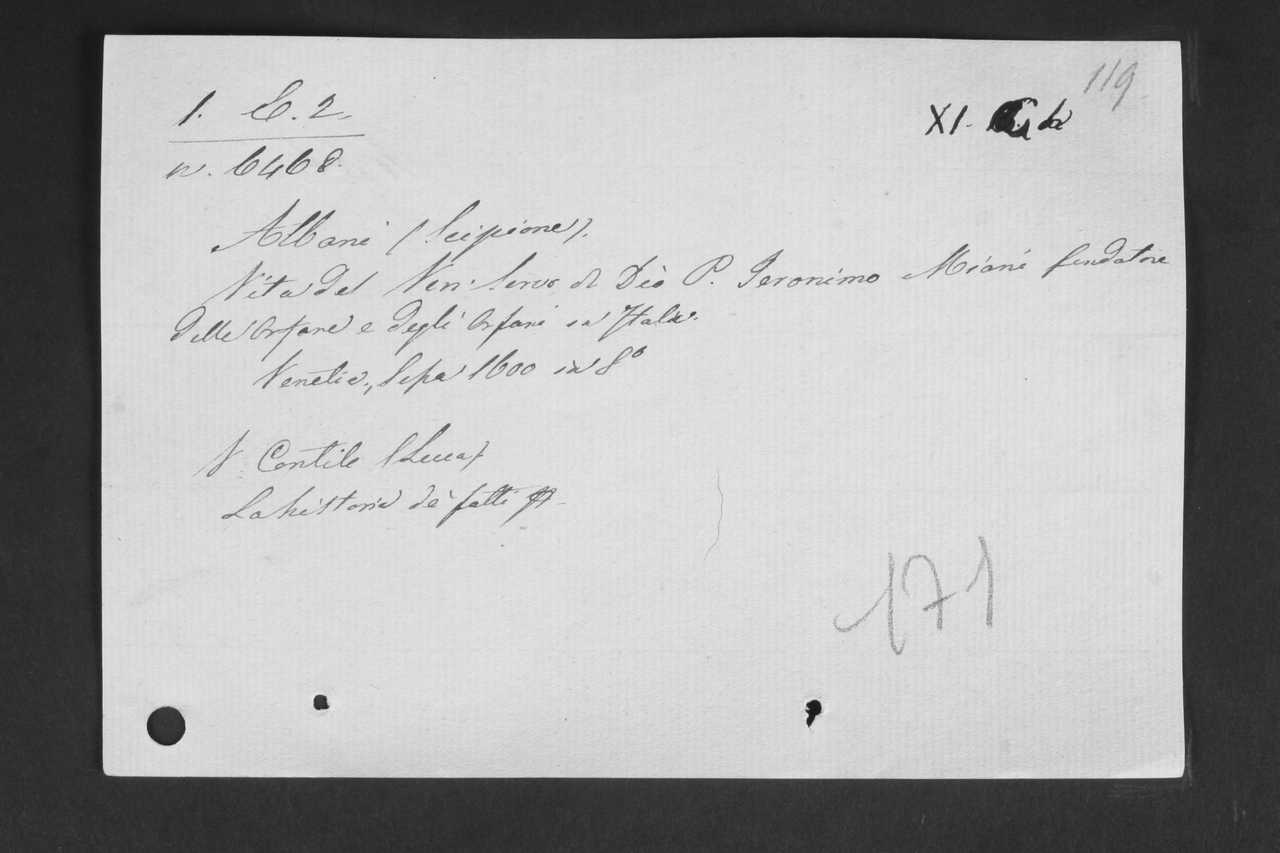 119
1. C. 2.
XI.
n. 6468.
Albani (Scipione).
Vita del Ven. Servo di Dio P. Jeronimo Miani fondatore
delle Orfane e degli Orfani in Italia.
Venetia, 1600 in 8º
V. Contile (Luca)
La historia de' fatti
171